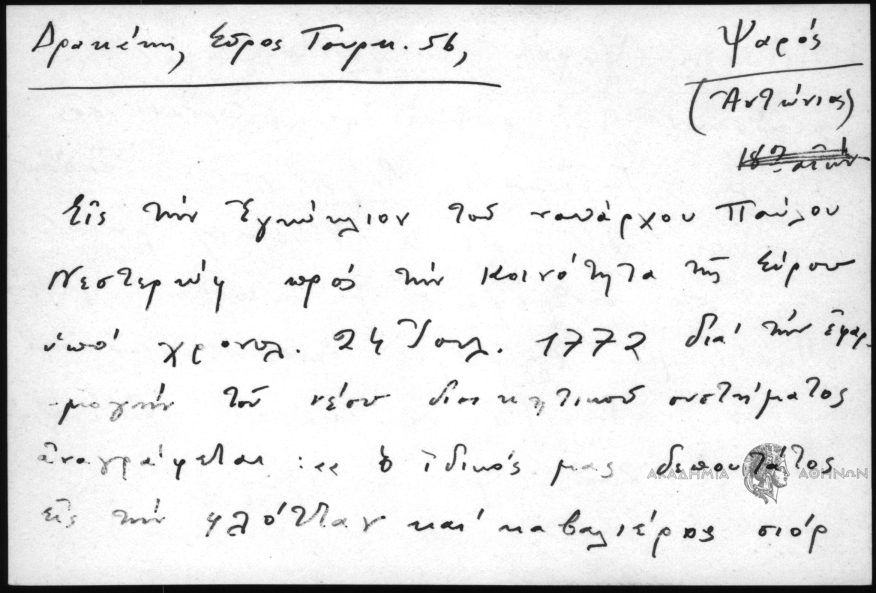 Δρακάκη, Σύρος Τουρκ. 56,
Ψαρός
(Αντώνιος)
Εἰς τὴν Ἐγκύκλιον τοῦ ναυάρχου Παύλου
Νεστερώφ πρὸς τὴν Κοινότητα τῆς Σύρου
ὑπὸ χρονολ. 24 Ἰουλ. 1772 διὰ τὴν ἐφαρ-
μογὴν τοῦ νέου διοικητικοῦ συστήματος
ἀναγράφεται : « ὁ ἰδικός μας δεπουτάτος
εἰς τὴν φλότταν καὶ καβαλιέρος σιόρ
ΑΚΑΔΗΜΙΑ ΑΘΗΝΩΝ